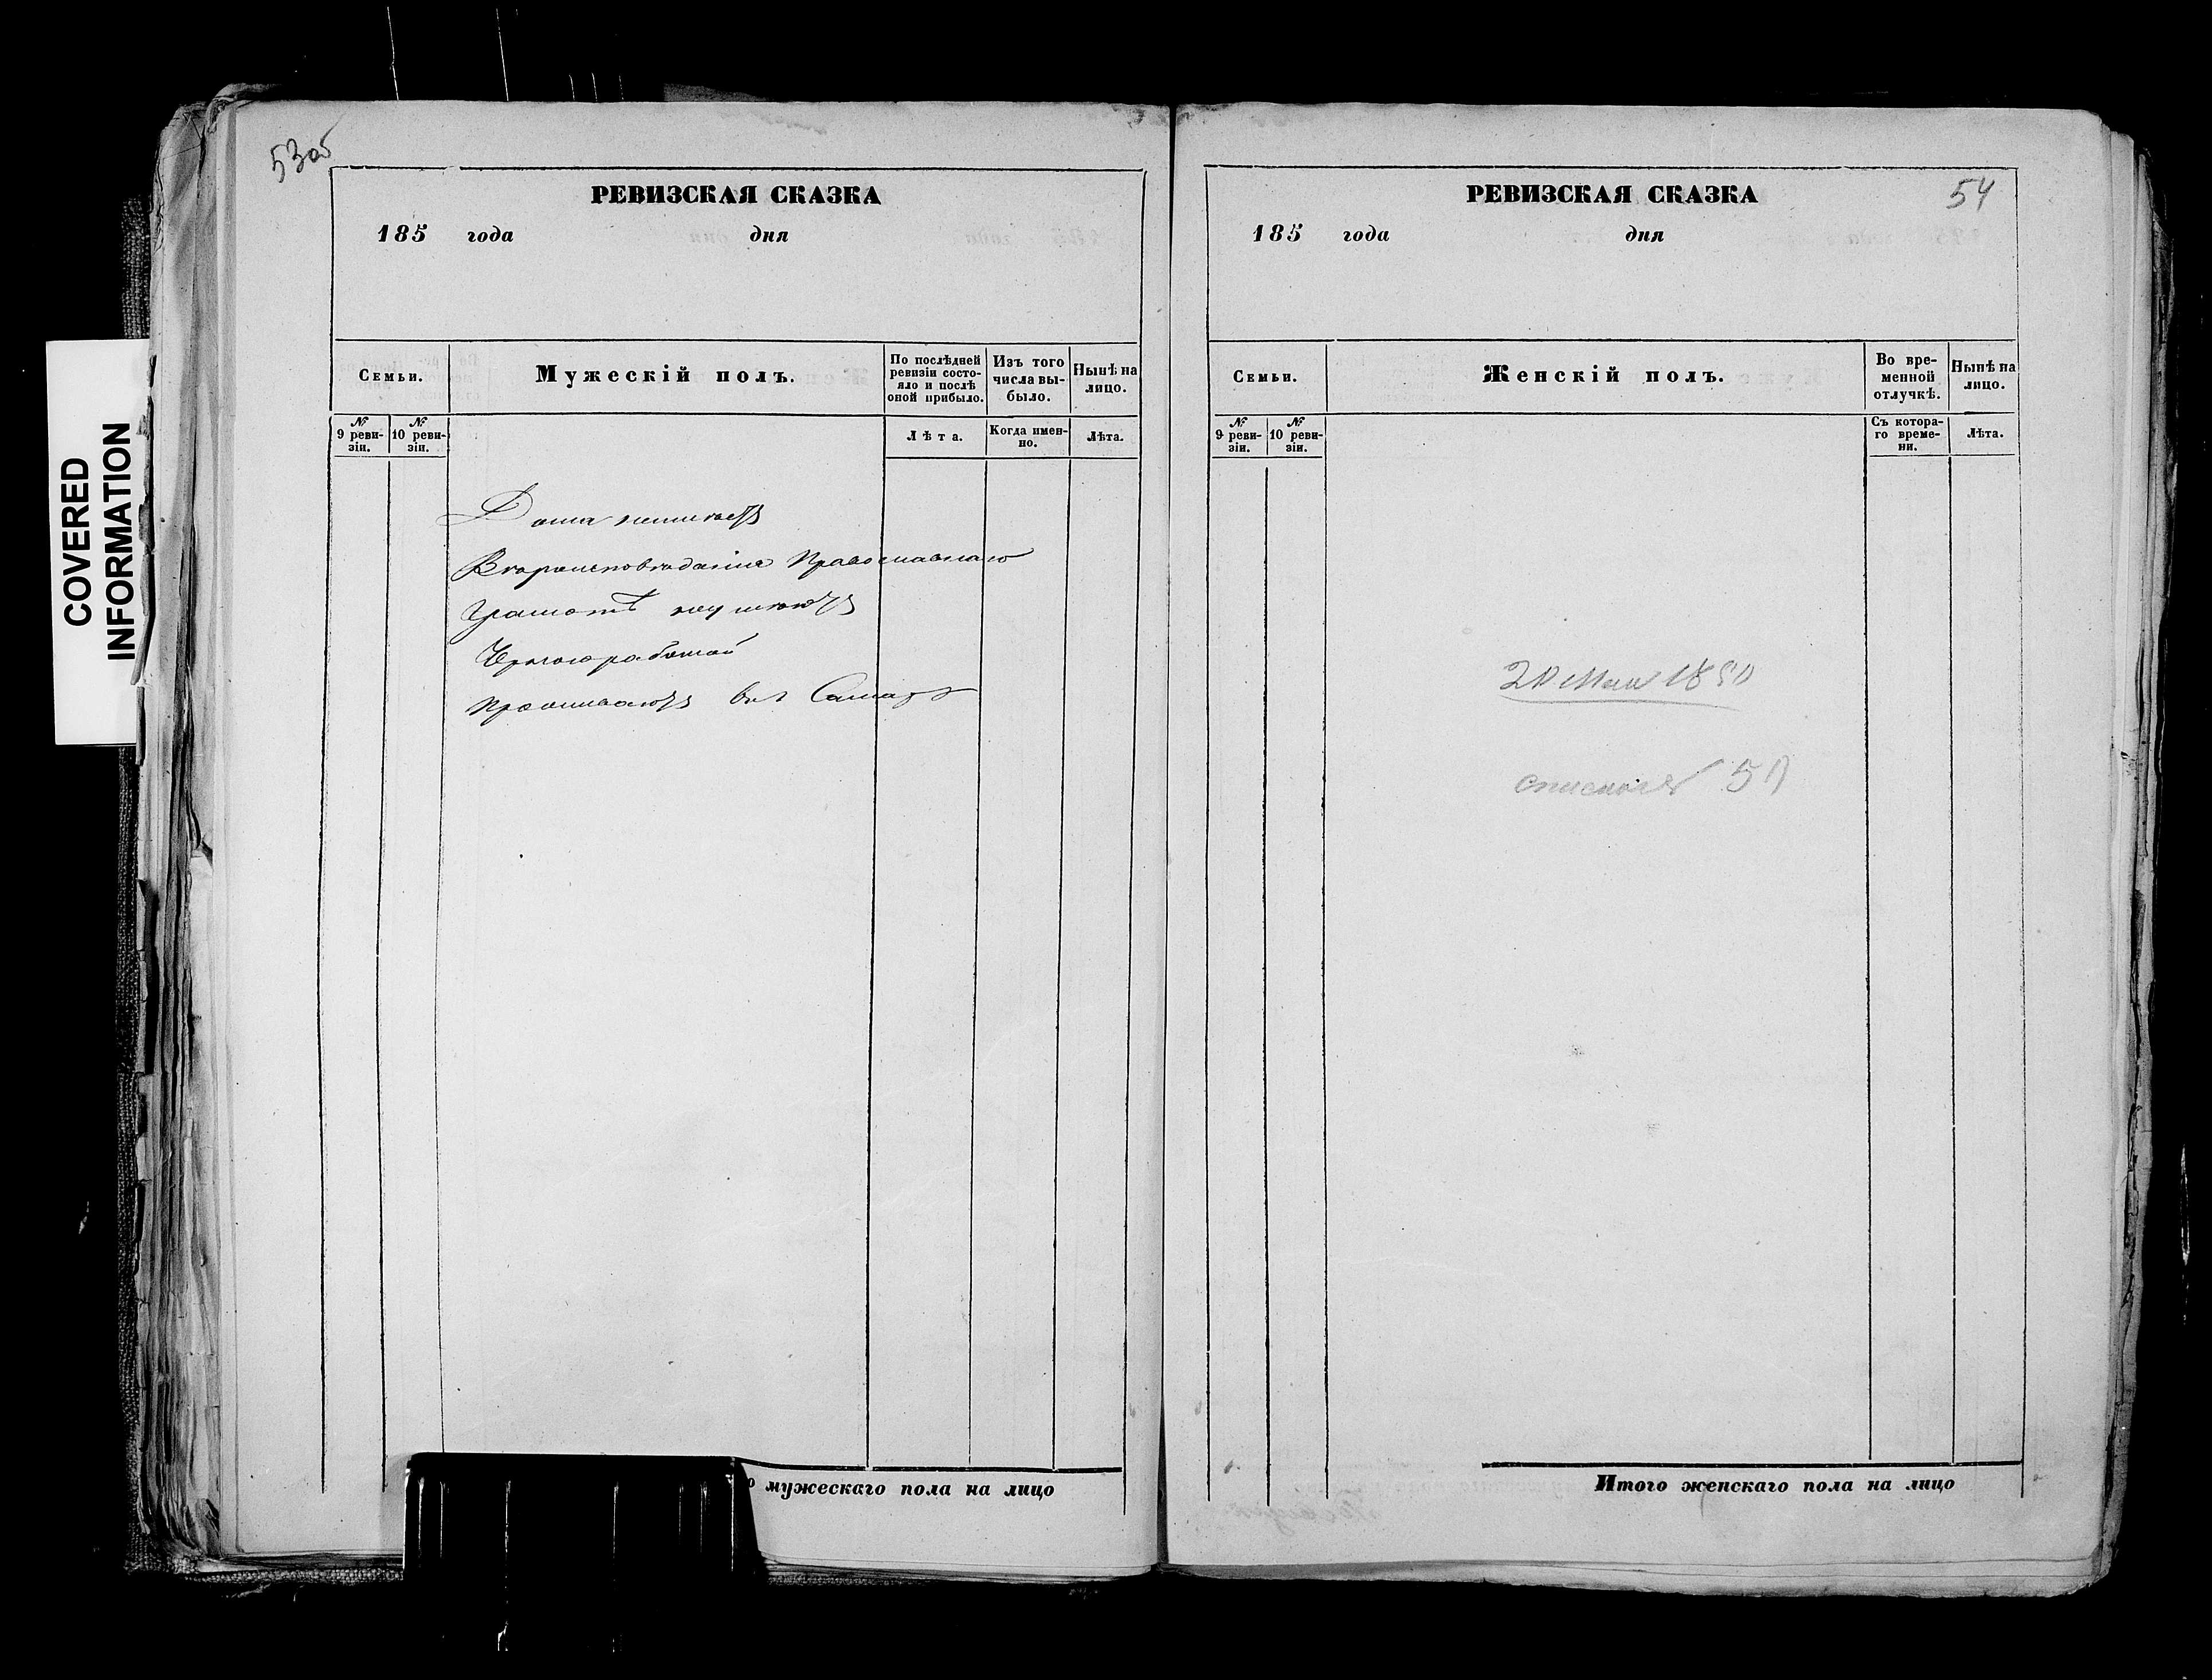 53об
РЕВИЗСКАЯ СКАЗКА
185 года дня
Семьи.
Мужескій полъ.
По послѣдней ревизіи состо-
яло и послѣ
оной прибыло.
Изъ того
числа вы-
было.
Нынѣ на
лицо.
№
9 реви-
зіи.
№
10 реви-
зіи.
Лѣта.
Когда имен-
но.
Лѣта.
Дома неимеетъ
Вероисповедания Православнаго
Грамотѣ неумеютъ
Черною работой
Проживаютъ въ г Самаре
мужескаго пола на лицо
54
РЕВИЗСКАЯ СКАЗКА
185 года дня
Семьи.
Женскій полъ.
Во вре-
менной
отлучкѣ.
Нынѣ на
лицо.
№
9 реви-
зіи.
№
10 реви-
зіи.
Съ котора-
го време-
ни.
Лѣта.
20 Мая 18
Итого женскаго пола на лицо
COVERED
INFORMATION